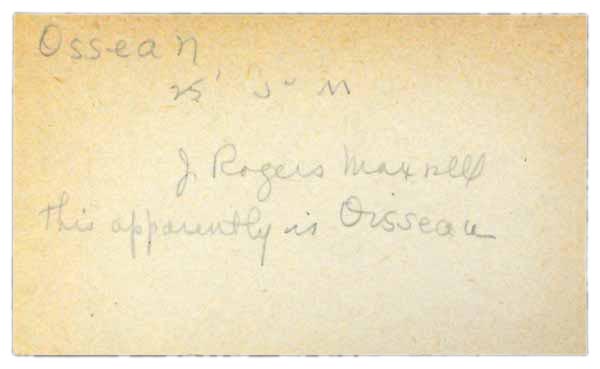 Ossean
25' J" M
J Rogers Maxwell
this apparently is Oisseau